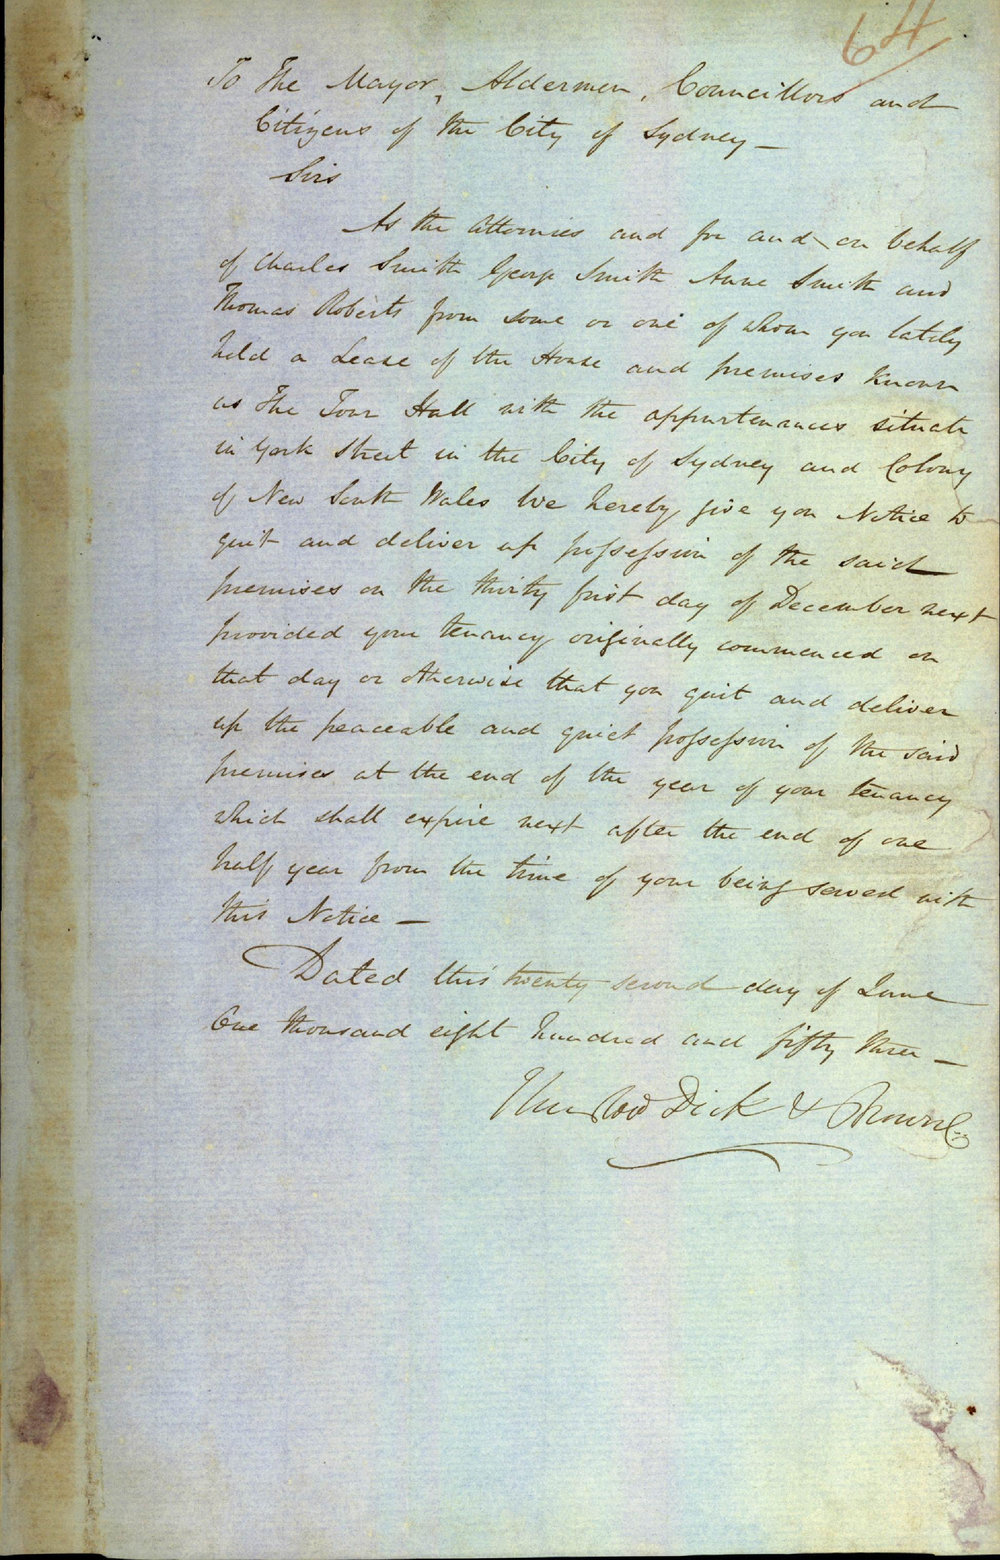 64
To The Mayor, Aldermen, Councillors and
Citizens of the City of Sydney —
Sirs
As the Attornies and for and on behalf
of Charles Smith George Smith Anne Smith and
Thomas Roberts from some or one of whom you lately
held a Lease of the House and premises known
as The Town Hall with the appurtenances situate
in York Street in the City of Sydney and Colony
of New South Wales We hereby give you Notice to
quit and deliver up possession of the said
premises on the thirty first day of December next
provided your tenancy originally commenced on
that day or otherwise that you quit and deliver
up the peaceable and quiet possession of the said
premises at the end of the year of your tenancy
which shall expire next after the end of one
half year from the time of your being served with
this Notice —
Dated this twenty second day of June
One thousand eight hundred and fifty three —
Dick & Brown